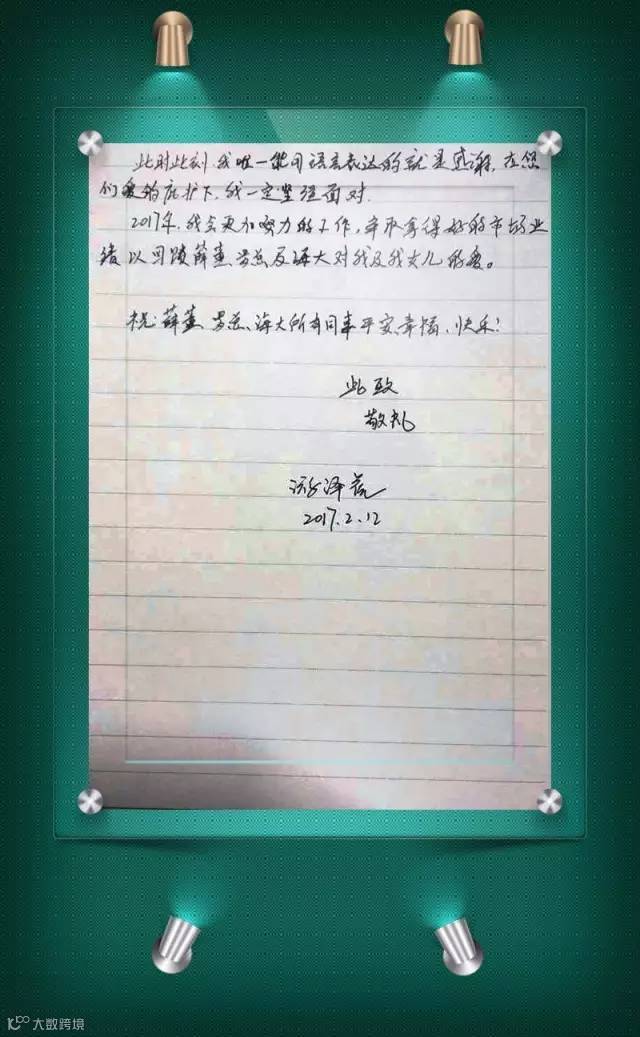 此时此刻，我唯一能用语言表达的就是感谢，在您
们爱的庇护下，我一定坚强面对。
2017年，我会更加努力的工作，争取拿得好的市场业
绩以回馈薛董、劳总及海大对我及我女儿的爱。
祝：薛董、劳总、海大所有同事平安、幸福、快乐！
此致
敬礼
泽
2017.2.12
大数跨境